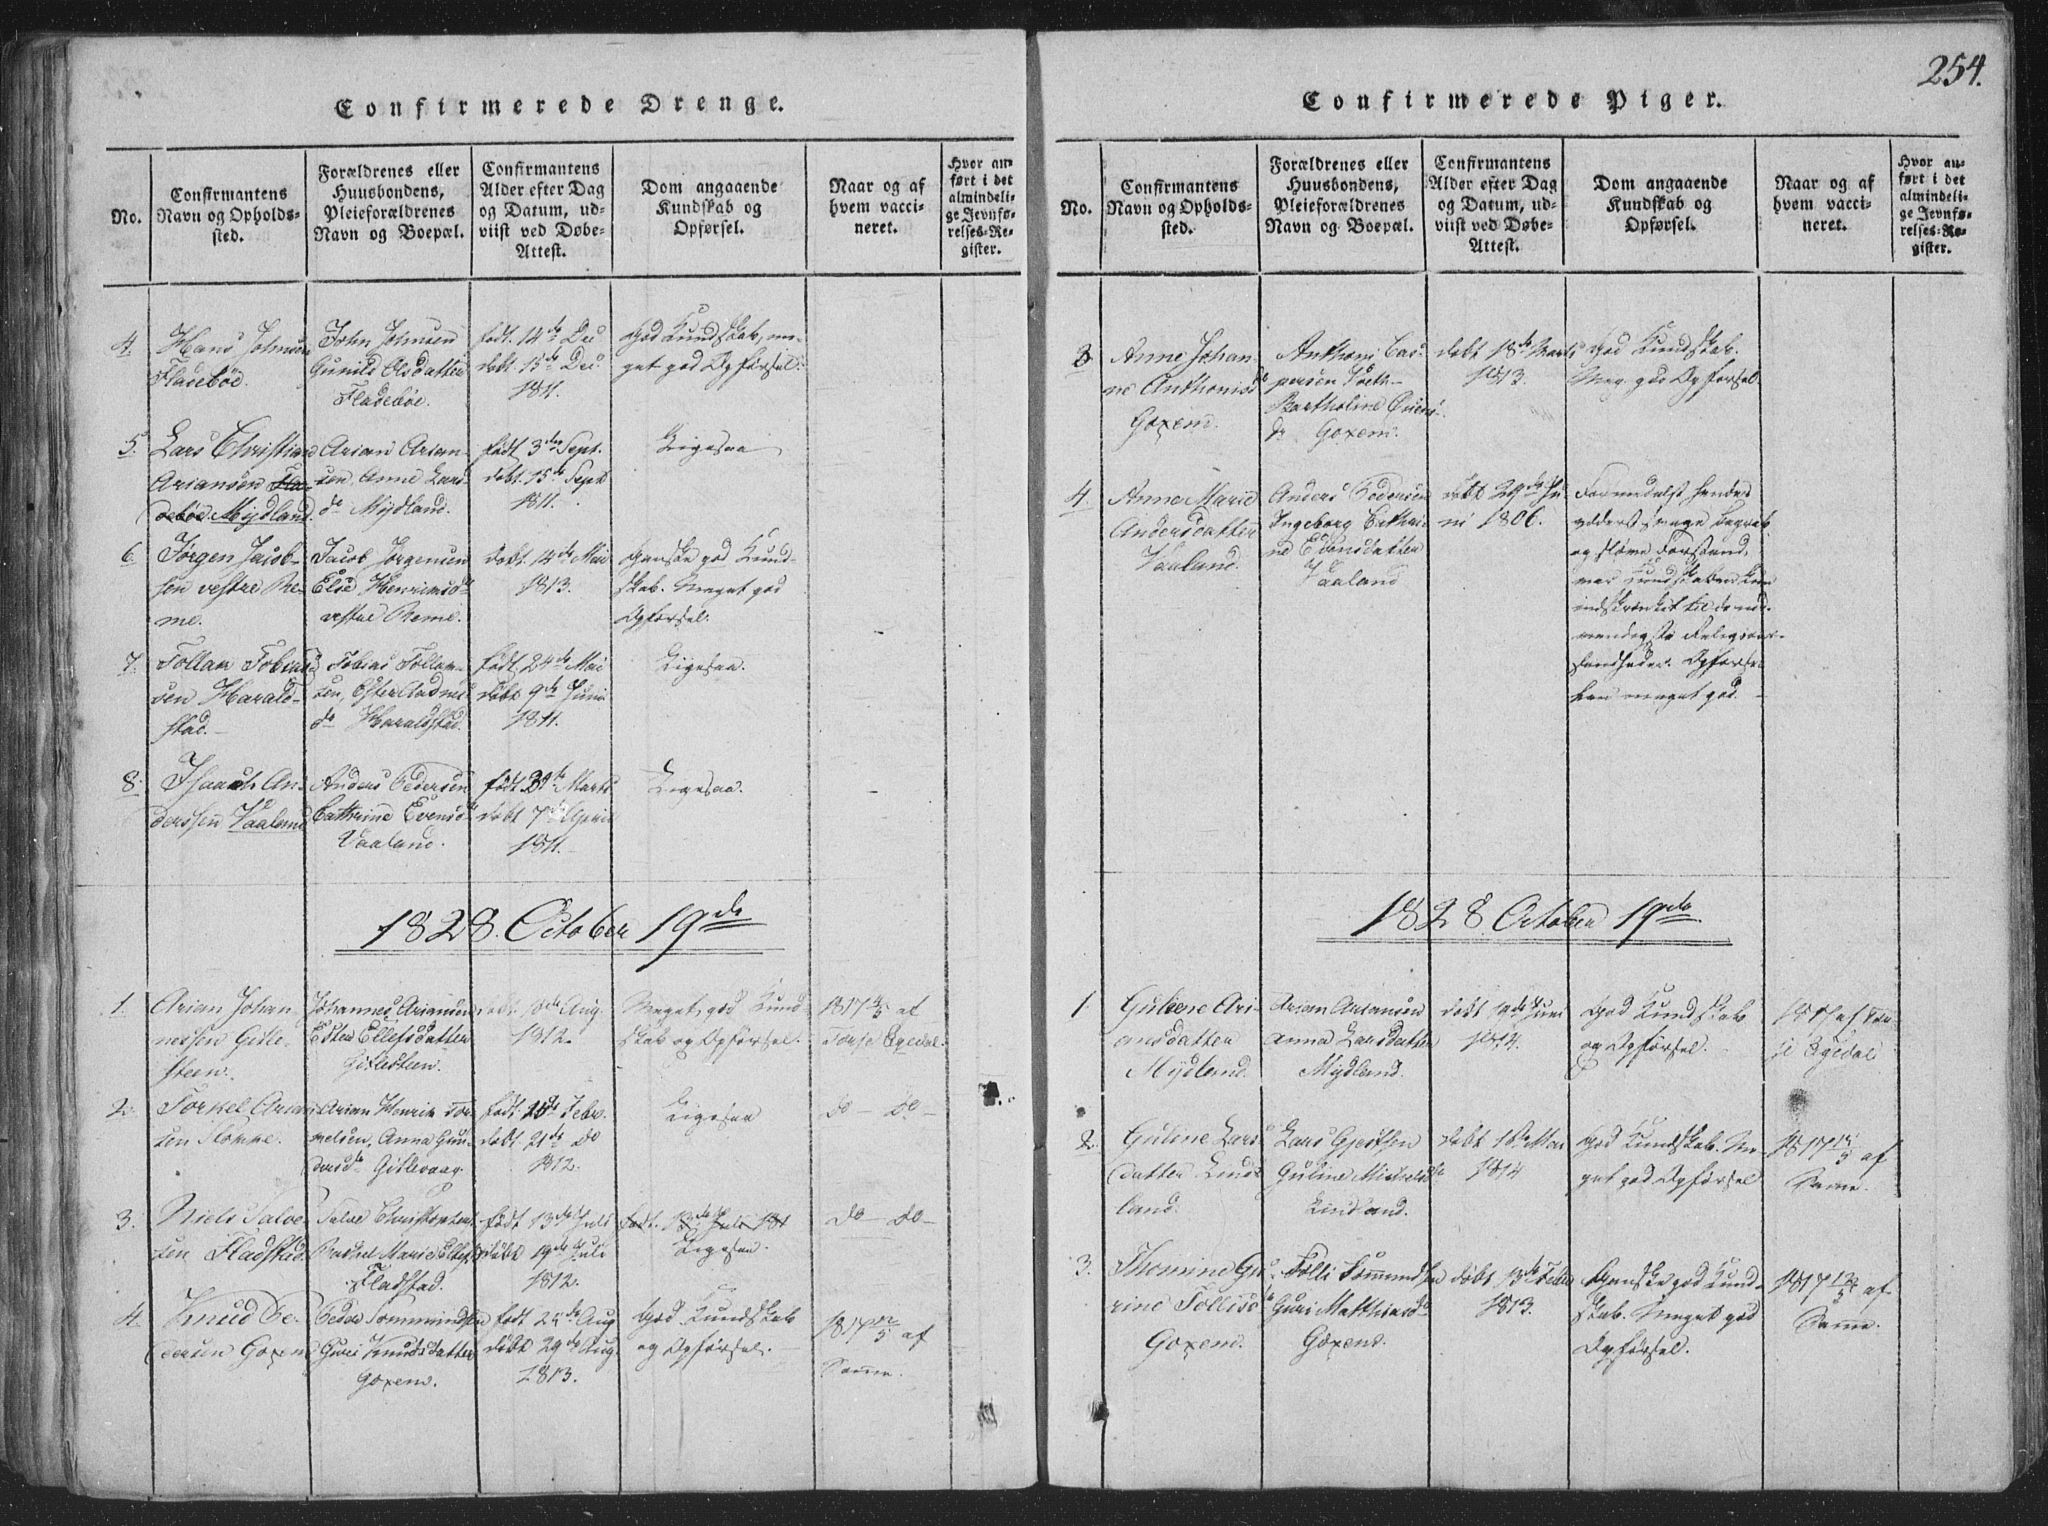 254.
Confirmerede Drenge.
No.
Confirmantens
Navn og Opholds-
sted.
Forældrenes eller
Huusbondens,
Pleieforældrenes
Navn og Boepæl.
Confirmantens
Alder efter Dag
og Datum, ud-
viist ved Døbe-
Attest.
Dom angaaende
Kundskab og
Opførsel.
Naar og af
hvem vacci-
neret.
Hvor an-
ført i det
almindeli-
ge Jevnfø-
relses-Re-
gister.
4.
Hans Johnsen
Fladebøe.
John Johnsen
Gunild Olsdatter
Fladebøe.
født. 14de Dec
døbt. 15de Dec
1811.
God Kundskab, me-
get god Opførsel.
5.
Lars Christian
Ariansen Fla-
debøe. Mydland.
Arian Arian-
sen, Anne Lars
dr Mydland.
født 3den Sept.
døbt. 15de Sept
1811.
Ligesaa
6.
Jørgen Jacob-
sen vestre Re-
me.
Jacob Jørgensen
Else Henriksdr
vestre Reme.
døbt. 14de Mai
1813.
Ganske god Kund-
skab. Meget god
Opførsel.
7.
Tollan Tobias
sen Harald-
stad.
Tobias Tollan-
sen, Ester Aadnes
dr Haraldstad.
født 24de Mai
døbt 9de Juni
1811.
Ligesaa.
8.
Isaach An-
derssen Vaaland
Anders Pedersen
Cathrine Evensdr
Vaaland.
født 31te Marts
døbt 7de April
1811.
Ligesaa.
1828. October 19de
1.
Arian Johan-
nessen Gitle-
steen.
Johannes Ariansen
Ester Ellefsdatter
Gitlesteen.
1812.
Meget god Kund-
skab og Opførsel.
1817 af
Torje Egedal.
2.
Torkel Arian
sen Flokke.
Arian Henrik Tor-
kelsen, Anna Gun-
dersdr Gitlevaag.
født. 20de Febr.
døbt. 21de do
1812.
Ligesaa
do — do —
3.
Niels Salve
sen Fladstad
Salve Christophers
Rachel Marie Ellefs
Fladstad.
født 13de Juli
døbt 19de Juli
1812.
født. 13de Juli 181
Ligesaa.
do — do —
4.
Knud Pe-
dersen Goxem
Peder Tommundsen
Guri Knudsdatter
Goxem.
født 24de Aug
døbt 29de Aug.
1813.
God Kundskab
og Opførsel.
1817 af
Samme.
Confirmerede Piger.
No.
Confirmantens
Navn og Opholds-
sted.
Forældrenes eller
Huusbondens,
Pleieforældrenes
Navn og Boepæl.
Confirmantens
Alder efter Dag
og Datum, ud-
viist ved Døbe-
Attest.
Dom angaaende
Kundskab og
Opførsel.
Naar og af
hvem vacci-
neret.
Hvor an-
ført i det
almindeli-
ge Jevnfø-
relses-Re-
gister.
3
Anne Johan-
ne Anthonisdr
Goxem.
Anthoni Cas-
persen
Bartholine
dr Goxem.
døbt 18de Marts
1813.
God Kundskab.
Meg. god Opførsel.
4.
Anne Marie
Andersdatter
Vaaland.
Anders Pedersen
Ingeborg Cathri-
ne Evensdatter
Vaaland
døbt 29de Ju-
ni 1806.
Formedelst hendes
yderst svage Begreb
og sløve Forstand,
var Kundskaben kun
indskrænket til de nød-
vendigste Religions-
sandheder. Opførse-
len meget god.
1828. October 19de
1
Guliene Ari-
ansdatter
Mydland.
Arian Ariansen
Anna Larsdatter
Mydland.
døbt 19de Juni
1814.
God Kundskab
og Opførsel.
af Tor-
je Egedal
2.
Guline Lars
datter Linde
land.
Lars Gjertsen
Guline Michelsdr
Lindland.
1814
God Kundskab. Me-
get god Opførsel
1817 af
Samme.
3.
Thomine Gu-
rine Tollisdr
Goxem.
Tolli Tommundsen
Guri Matthiasdr
Goxem.
døbt 13de Febr
1813.
Ganske god Kund-
skab. Meget god
Opførsel.
1817 af
Samme.